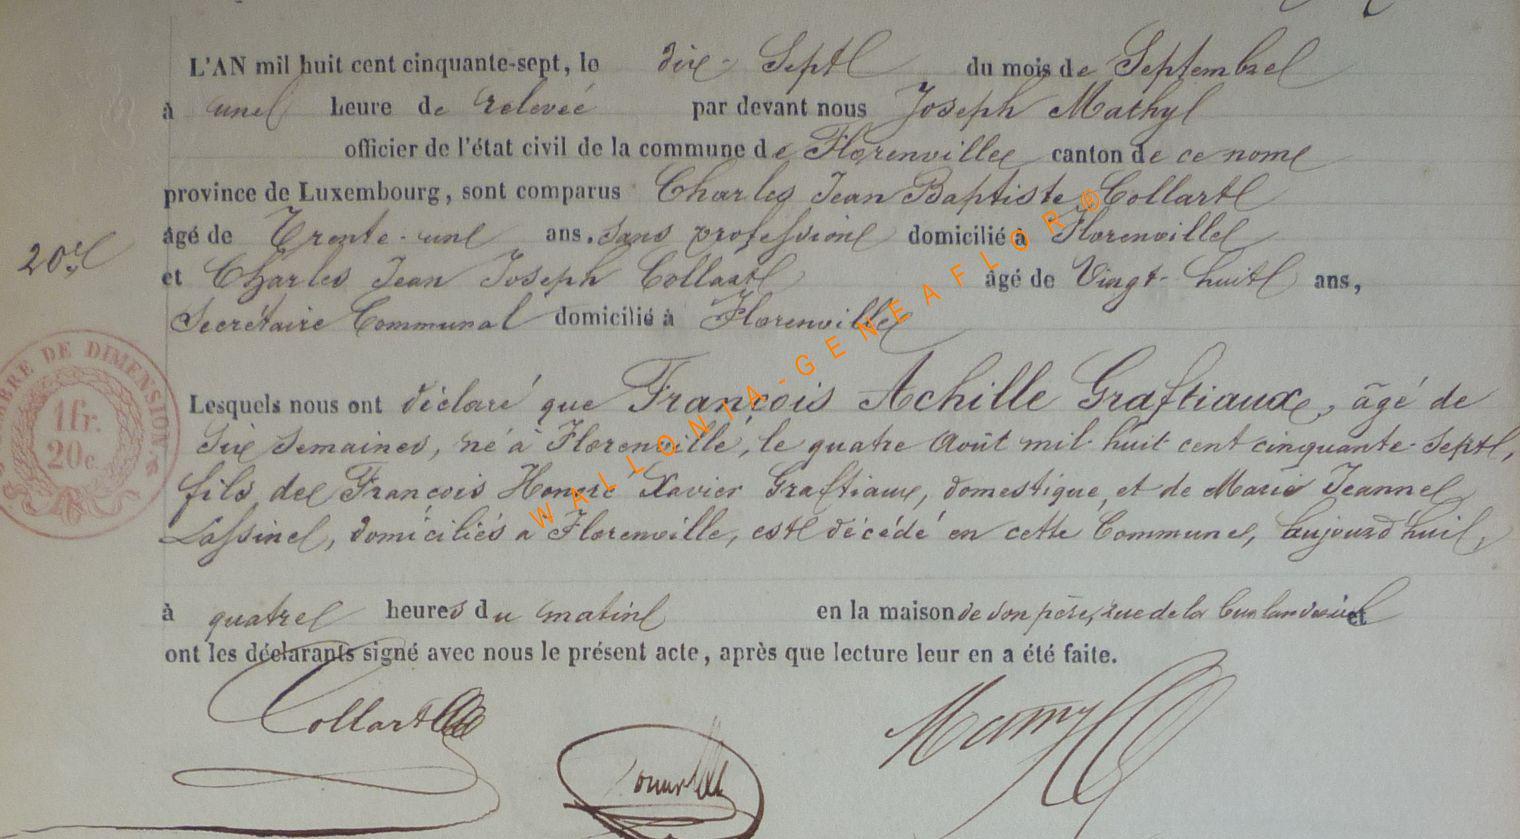 L'AN mil huit cent cinquante-sept, le dix-Sept du mois de Septembre
à une heure de relevée par devant nous Joseph Mathy
officier de l'état civil de la commune de Florenville canton de ce nom
province de Luxembourg, sont comparus Charles Jean Baptiste Collart
âgé de Trente-un ans. sans profession domicilié à Florenville
20e
et Charles Jean Joseph Collart âgé de Vingt-huit ans,
Secrétaire Communal domicilié à Florenville
TIMBRE DE DIMENSION.
1 fr.
20 c.
Lesquels nous ont déclaré que François Achille Graftiaux, âgé de
Six semaines, né à Florenville, le quatre Août mil huit cent cinquante-sept,
fils de François Honoré Xavier Graftiaux, domestique, et de Marie Jeanne
Lassine, domiciliés a Florenville, est décédé en cette Commune, aujourd'hui,
à quatre heures du matin en la maison de son père, rue de la et
ont les déclarants signé avec nous le présent acte, après que lecture leur en a été faite.
Collart Mathy
WALLONIA-GENEAFLOR®